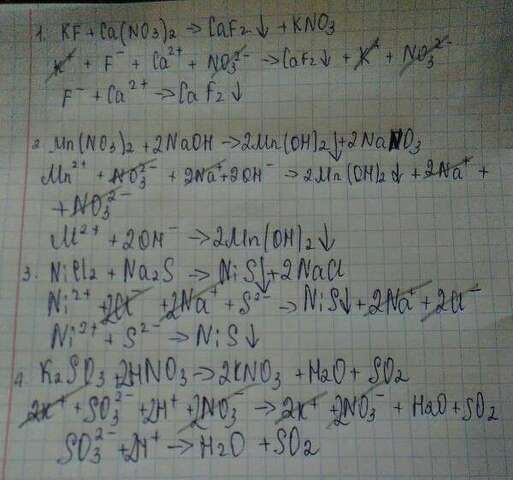 1. KF + Ca(NO₃)₂ → CaF₂↓ + KNO₃
K⁺ + F⁻ + Ca²⁺ + NO₃²⁻ → CaF₂↓ + K⁺ + NO₃²⁻
F⁻ + Ca²⁺ → CaF₂↓
2. Mn(NO₃)₂ + 2NaOH → 2Mn(OH)₂↓ + 2NaNO₃
Mn²⁺ + NO₃²⁻ + 2Na⁺ + 2OH⁻ → 2Mn(OH)₂↓ + 2Na⁺ +
+ NO₃²⁻
M²⁺ + 2OH⁻ → 2Mn(OH)₂↓
3. NiCl₂ + Na₂S → NiS↓ + 2NaCl
Ni²⁺ + 2Cl⁻ + 2Na⁺ + S²⁻ → NiS↓ + 2Na⁺ + 2Cl⁻
Ni²⁺ + S²⁻ → NiS↓
4. K₂SO₃ + 2HNO₃ → 2KNO₃ + H₂O + SO₂
2K⁺ + SO₃²⁻ + 2H⁺ + 2NO₃⁻ → 2K⁺ + 2NO₃⁻ + H₂O + SO₂
SO₃²⁻ + 2H⁺ → H₂O + SO₂